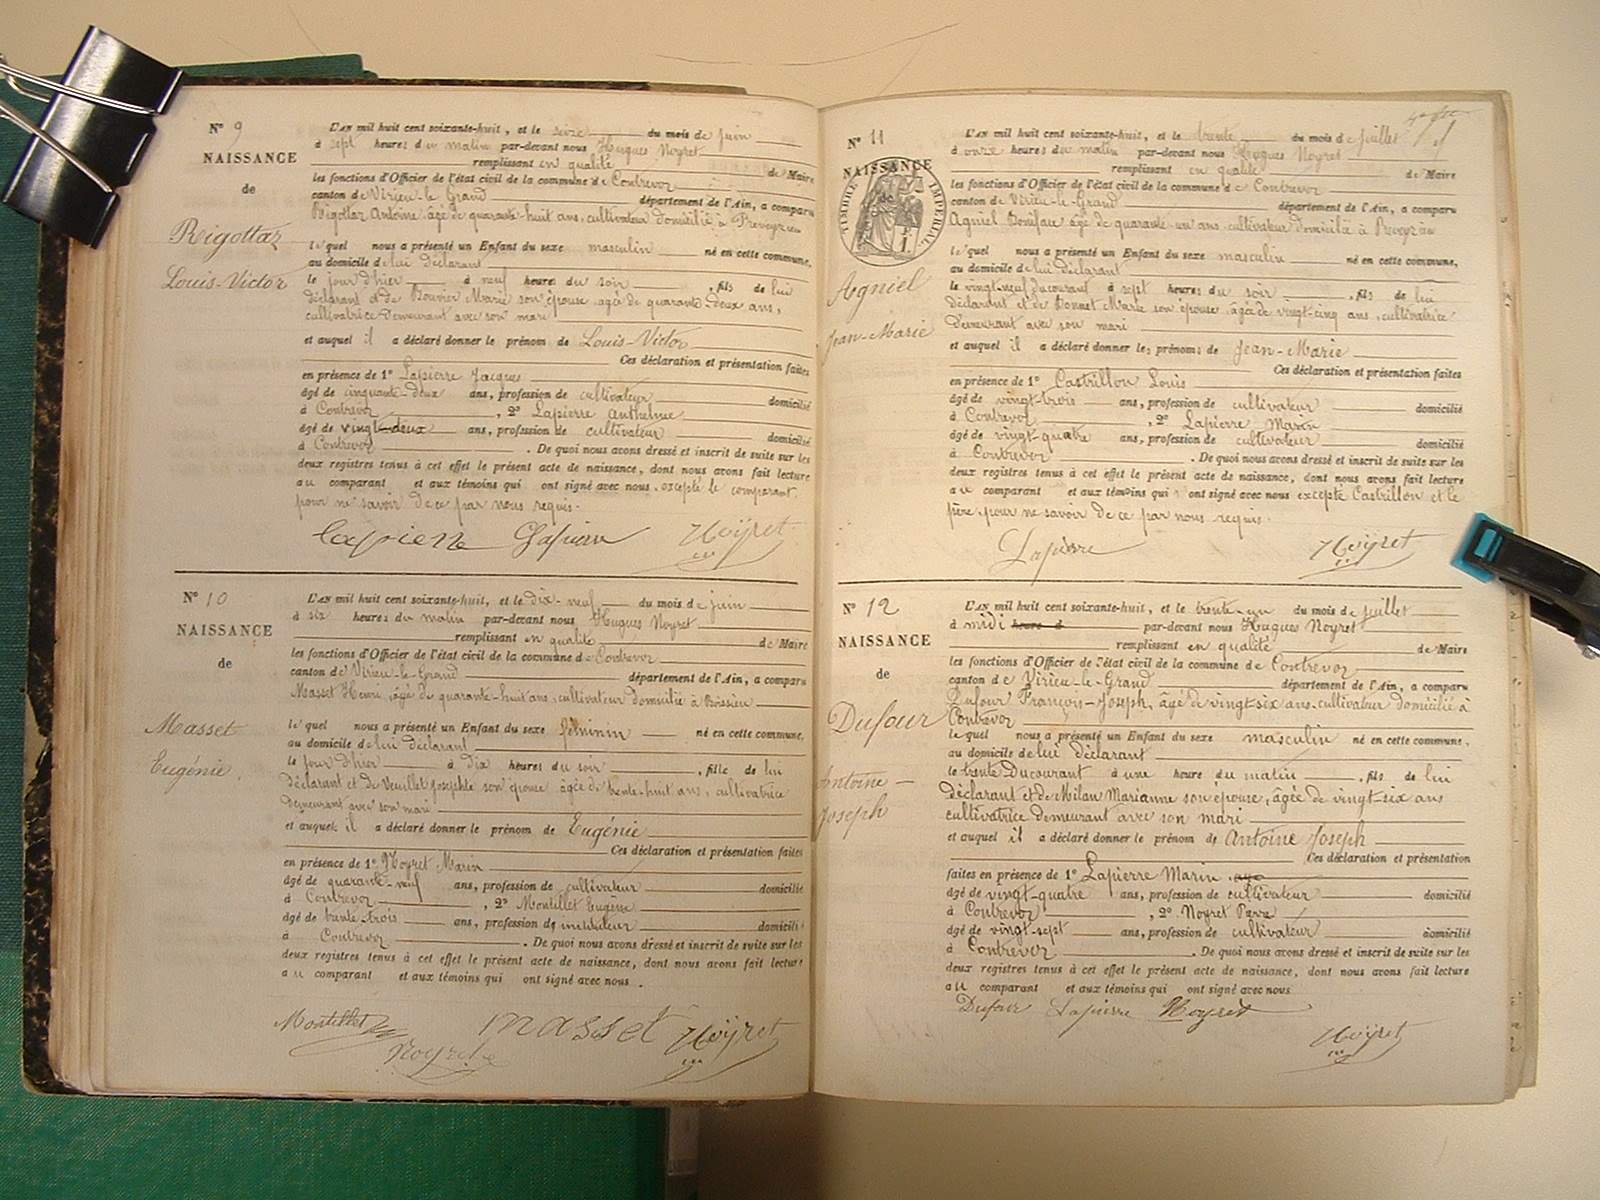 N° 9
NAISSANCE
de
Rigottaz
Louis-Victor
L'AN mil huit cent soixante-huit, et le seize du mois de juin
à sept heures du matin par-devant nous Hugues Noyret
remplissant en qualité de Maire
les fonctions d'Officier de l'état civil de la commune de Contrevoz
canton de Virieu-le-Grand département de l'Ain, a comparu
Rigottaz Antoine, âgé de quarante-huit ans, cultivateur domicilié à
le quel nous a présenté un Enfant du sexe masculin né en cette commune,
au domicile de lui déclarant
le jour d'hier à neuf heures du soir, fils de lui
déclarant et de Bouvier Marie son épouse, âgée de quarante-deux ans,
cultivatrice demeurant avec son mari
et auquel il a déclaré donner le prénom de Louis-Victor
Ces déclaration et présentation faites
en présence de 1° Lapierre Jacques
âgé de cinquante-deux ans, profession de cultivateur domicilié
à Contrevoz, 2° Lapierre Anthelme
âgé de vingt-deux ans, profession de cultivateur domicilié
à Contrevoz. De quoi nous avons dressé et inscrit de suite sur les
deux registres tenus à cet effet le présent acte de naissance, dont nous avons fait lecture
au comparant et aux témoins qui ont signé avec nous, excepté le comparant,
pour ne savoir de ce par nous requis.
Lapierre Lapierre Noÿret
N° 10
NAISSANCE
de
Masset
Eugénie
L'AN mil huit cent soixante-huit, et le dix-neuf du mois de juin
à six heures du matin par-devant nous Hugues Noyret
remplissant en qualité de Maire
les fonctions d'Officier de l'état civil de la commune de Contrevoz
canton de Virieu-le-Grand département de l'Ain, a comparu
Masset Henri, âgé de quarante-huit ans, cultivateur domicilié à Boissieu
le quel nous a présenté un Enfant du sexe féminin né en cette commune,
au domicile de lui déclarant
le jour d'hier à dix heures du soir, fille de lui
déclarant et de Veuillet Josephte son épouse âgée de trente-huit ans, cultivatrice
demeurant avec son mari
et auquel il a déclaré donner le prénom de Eugénie
Ces déclaration et présentation faites
en présence de 1° Noyret Marin
âgé de quarante-neuf ans, profession de cultivateur domicilié
à Contrevoz, 2° Montillet Eugène
âgé de trente-trois ans, profession de instituteur domicilié
à Contrevoz. De quoi nous avons dressé et inscrit de suite sur les
deux registres tenus à cet effet le présent acte de naissance, dont nous avons fait lecture
au comparant et aux témoins qui ont signé avec nous.
Montillet Masset Noÿret
Noyret
N° 11
NAISSANCE
de
TIMBRE IMPÉRIAL
Agniel
Jean-Marie
L'AN mil huit cent soixante-huit, et le trente du mois de juillet
à onze heures du matin par-devant nous Hugues Noyret
remplissant en qualité de Maire
les fonctions d'Officier de l'état civil de la commune de Contrevoz
canton de Virieu-le-Grand département de l'Ain, a comparu
Agniel Boniface âgé de quarante-un ans, cultivateur domicilié à
le quel nous a présenté un Enfant du sexe masculin né en cette commune,
au domicile de lui déclarant
le vingt-neuf du courant à sept heures du soir, fils de lui
déclarant et de Bonnet Marie son épouse, âgée de vingt-cinq ans, cultivatrice
demeurant avec son mari
et auquel il a déclaré donner les prénoms de Jean-Marie
Ces déclaration et présentation faites
en présence de 1° Castrillon Louis
âgé de vingt-trois ans, profession de cultivateur domicilié
à Contrevoz, 2° Lapierre Marin
âgé de vingt-quatre ans, profession de cultivateur domicilié
à Contrevoz. De quoi nous avons dressé et inscrit de suite sur les
deux registres tenus à cet effet le présent acte de naissance, dont nous avons fait lecture
au comparant et aux témoins qui ont signé avec nous excepté Castrillon et le
père, pour ne savoir de ce par nous requis.
Lapierre Noÿret
N° 12
NAISSANCE
de
Dufour
Antoine-
Joseph
L'AN mil huit cent soixante-huit, et le trente-un du mois de juillet
à midi heure d par-devant nous Hugues Noyret
remplissant en qualité de Maire
les fonctions d'Officier de l'état civil de la commune de Contrevoz
canton de Virieu-le-Grand département de l'Ain, a comparu
Dufour François-Joseph, âgé de vingt-six ans, cultivateur domicilié à
Contrevoz
le quel nous a présenté un Enfant du sexe masculin né en cette commune,
au domicile de lui déclarant
le trente du courant à une heure du matin, fils de lui
déclarant et de Milan Marianne son épouse, âgée de vingt-six ans
cultivatrice demeurant avec son mari
et auquel il a déclaré donner le prénom de Antoine Joseph
Ces déclaration et présentation
faites en présence de 1° Lapierre Marin
âgé de vingt-quatre ans, profession de cultivateur domicilié
à Contrevoz, 2° Noyret Pierre
âgé de vingt-sept ans, profession de cultivateur domicilié
à Contrevoz. De quoi nous avons dressé et inscrit de suite sur les
deux registres tenus à cet effet le présent acte de naissance, dont nous avons fait lecture
au comparant et aux témoins qui ont signé avec nous
Dufour Lapierre Noyret
Noÿret